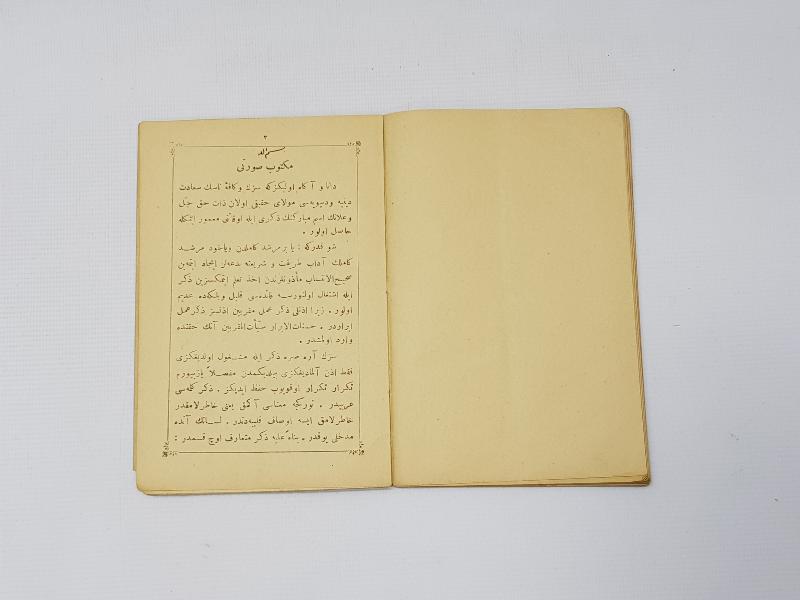 ٣
بسم الله
مكتوب صورتی
دانا و آكاه اولیكزكه سزك وكافهٔ ناسك سعادت
دینیه ودنیویه‌سی مولای حقیقی اولان ذات حق جل
وعلانك اسم مباركنك ذكری ایله اوقاتنی معمور ایتمكله
حاصل اولور .
شو قدركه : یا بر مرشد كاملدن ویاخود مرشد
كاملك آداب طریقت و شریعته بدعه‌لر ایجاد ایتمه‌ین
صحیح‌الانتساب مأذونلرندن اخذ تعلم ایتمكسزین ذكر
ایله اشتغال اولنورسه فائده‌سی قلیل وبلكه‌ده عدیم
اولور . زیرا اذنلی ذكر عمل مقربین اذنسز ذكر عمل
ابراردر . حسنات‌الابرار سیّأت‌المقربین آنك حقنده
وارد اولمشدر .
سزك آره صره ذكر ایله مشغول اولدیغكزی
فقط اذن آلمادیغكزی بیلدیكمدن مفصلاً یازییورم
تكرار تكرار اوقویوب حفظ ایدیكز . ذكر كله‌سی
عربیدر . توركجه معناسی آكمق یعنی خاطرلامقدر
خاطرلامق ایسه اوصاف قلبیه‌دندر . لسانك آنده
مدخلی یوقدر . بناءً علیه ذكر متعارف اوچ قسمدر :